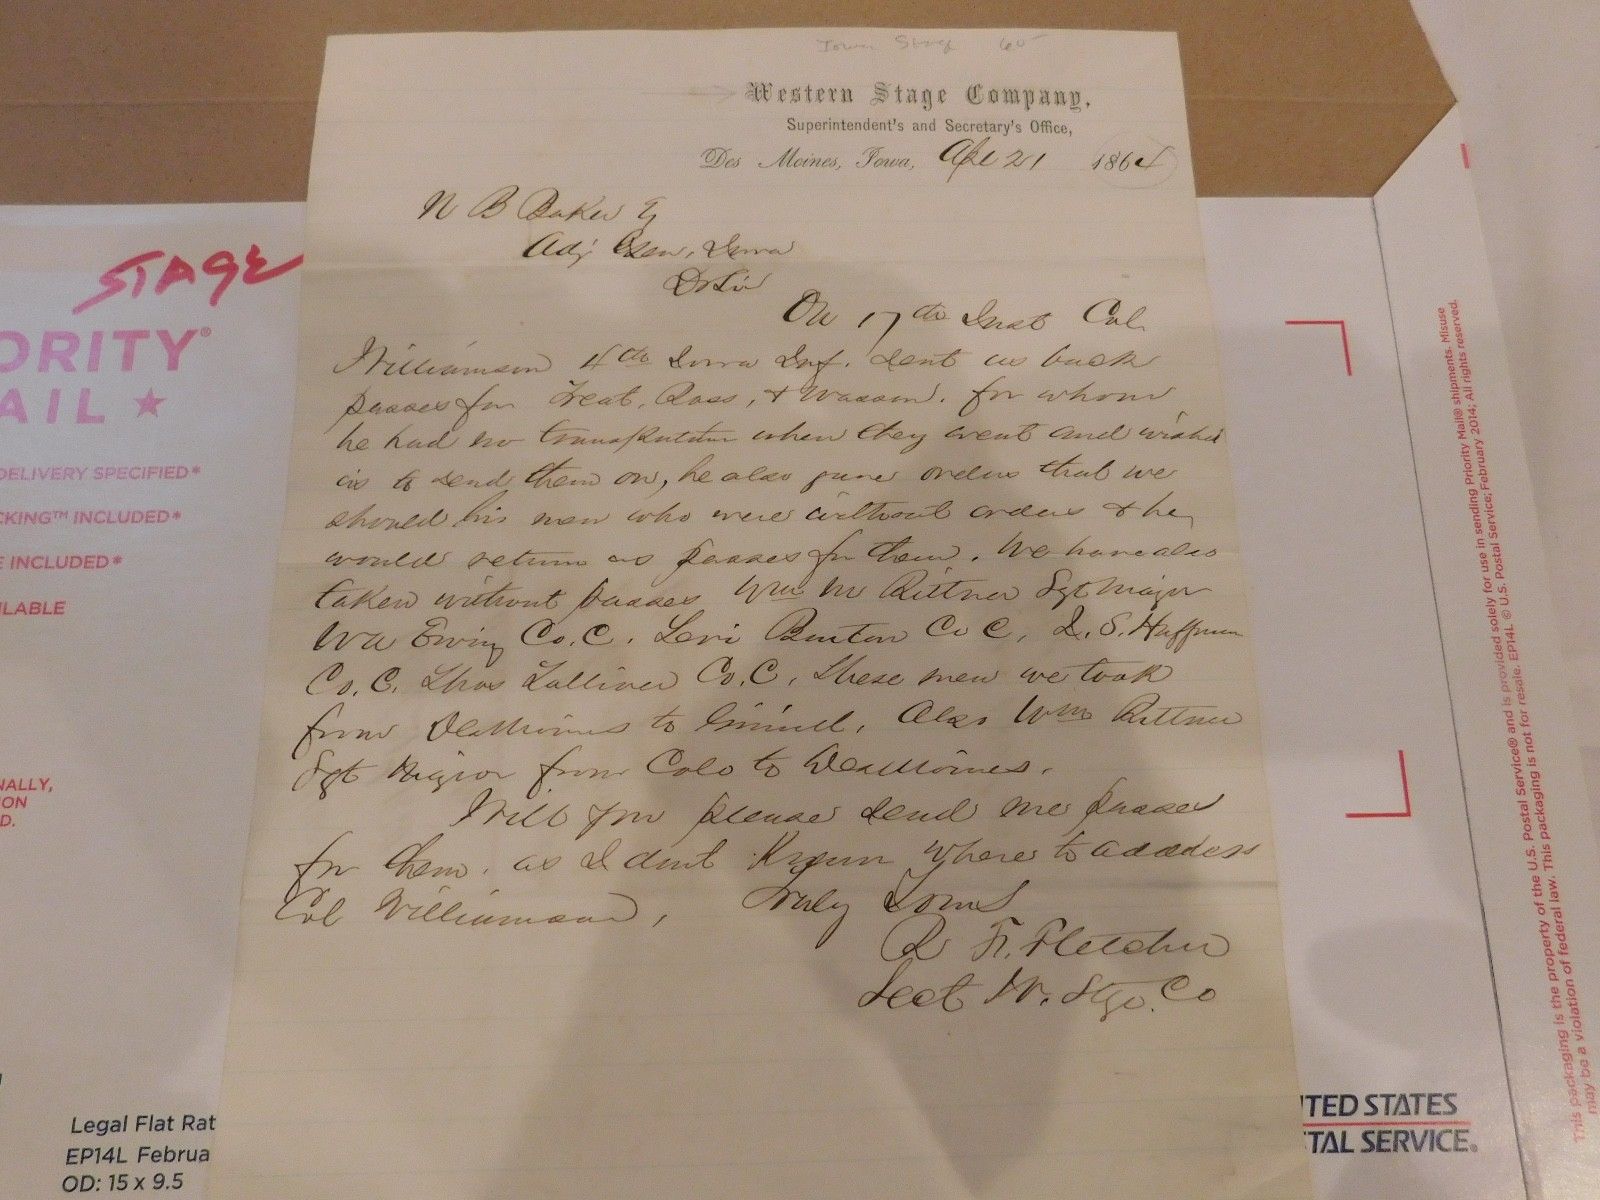 Iowa Stage 65
Western Stage Company,
Superintendent's and Secretary's Office,
Des Moines, Iowa, Apl 21 1864
N B Baker
Adj Gen, Iowa
Dr Sir
On 17th Inst Col.
Williamson 4th Iowa Inf. sent us back
passes for Treat, Ross, & Wasson. for whom
he had no transportation when they went and wished
us to send them on, he also gave orders that we
should his men who were without orders & he
would return us passes for them. We have also
taken without passes Wm M Rittner Sgt Major
Wm Ewing Co. C. Levi Co C, S. Huffman
Co. C. Thos Co. C, these men we took
from DesMoines to. Also Wm Rittner
Sgt Major from Colo to DesMoines.
Will you please send me passes
for them. as I dont Know where to address
Col Williamson, Truly Yours
Fletcher
Sect W. Stge. Co
STAGE
ORITY®
AIL
DELIVERY SPECIFIED*
CKING™ INCLUDED*
E INCLUDED*
ILABLE
NALLY,
ON
D.
Legal Flat Rat
EP14L Februa
OD: 15 x 9.5
TED STATES
TAL SERVICE®
This packaging is the property of the U.S. Postal Service® and is provided solely for use in sending Priority Mail® shipments. Misuse
may be a violation of federal law. This packaging is not for resale. EP14L © U.S. Postal Service; February 2014; All rights reserved.